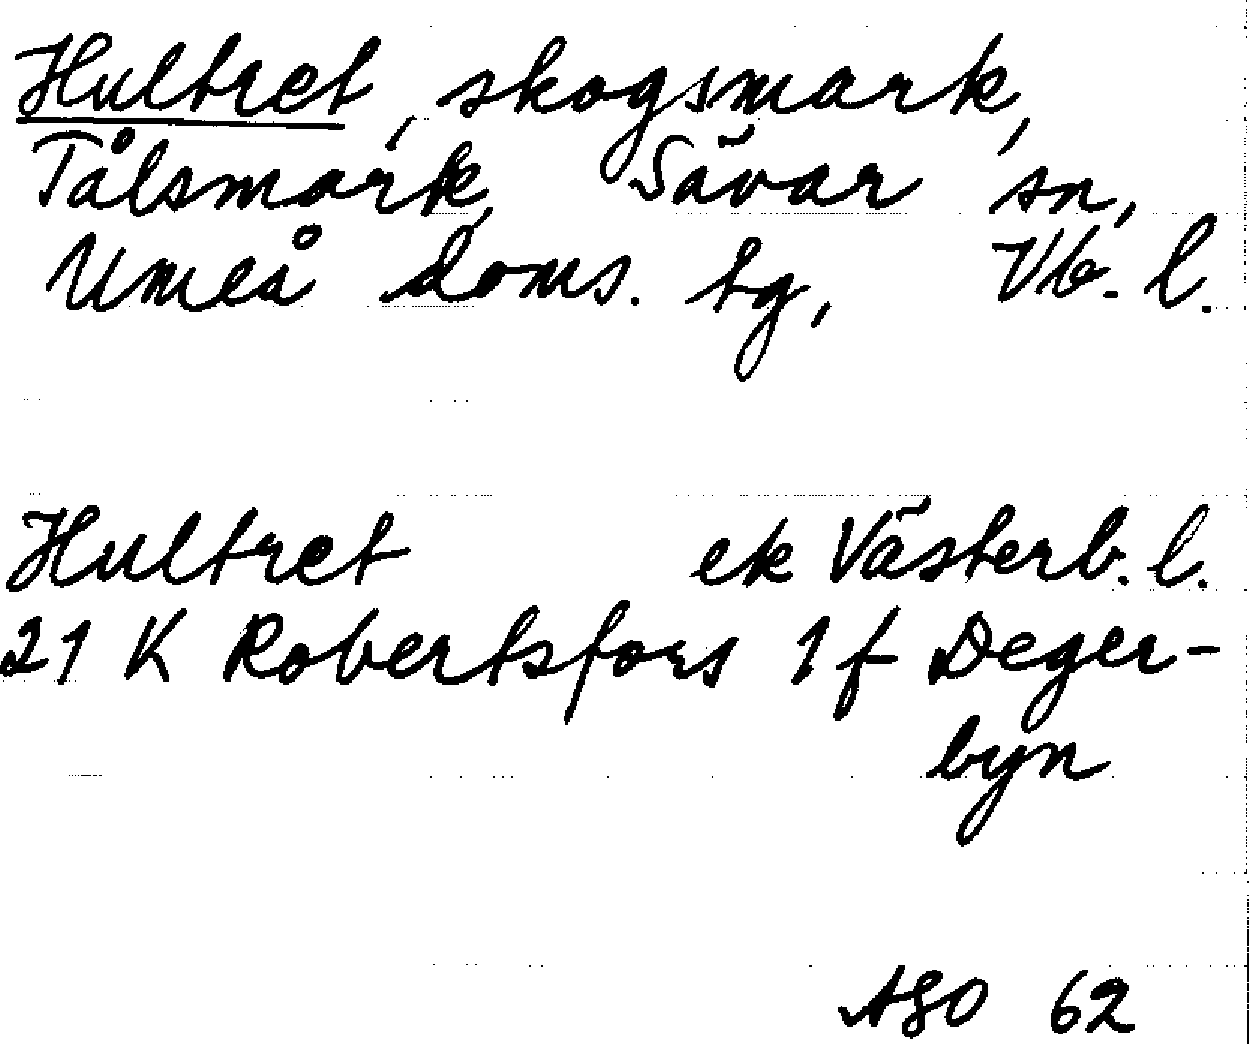 Hultret, skogsmark,
Tålsmark, Sävar sn,
Umeå doms. tg, Vb. l.
Hultret ek Västerb. l.
21 K Robertsfors 1 f Deger-
byn
ASO 62